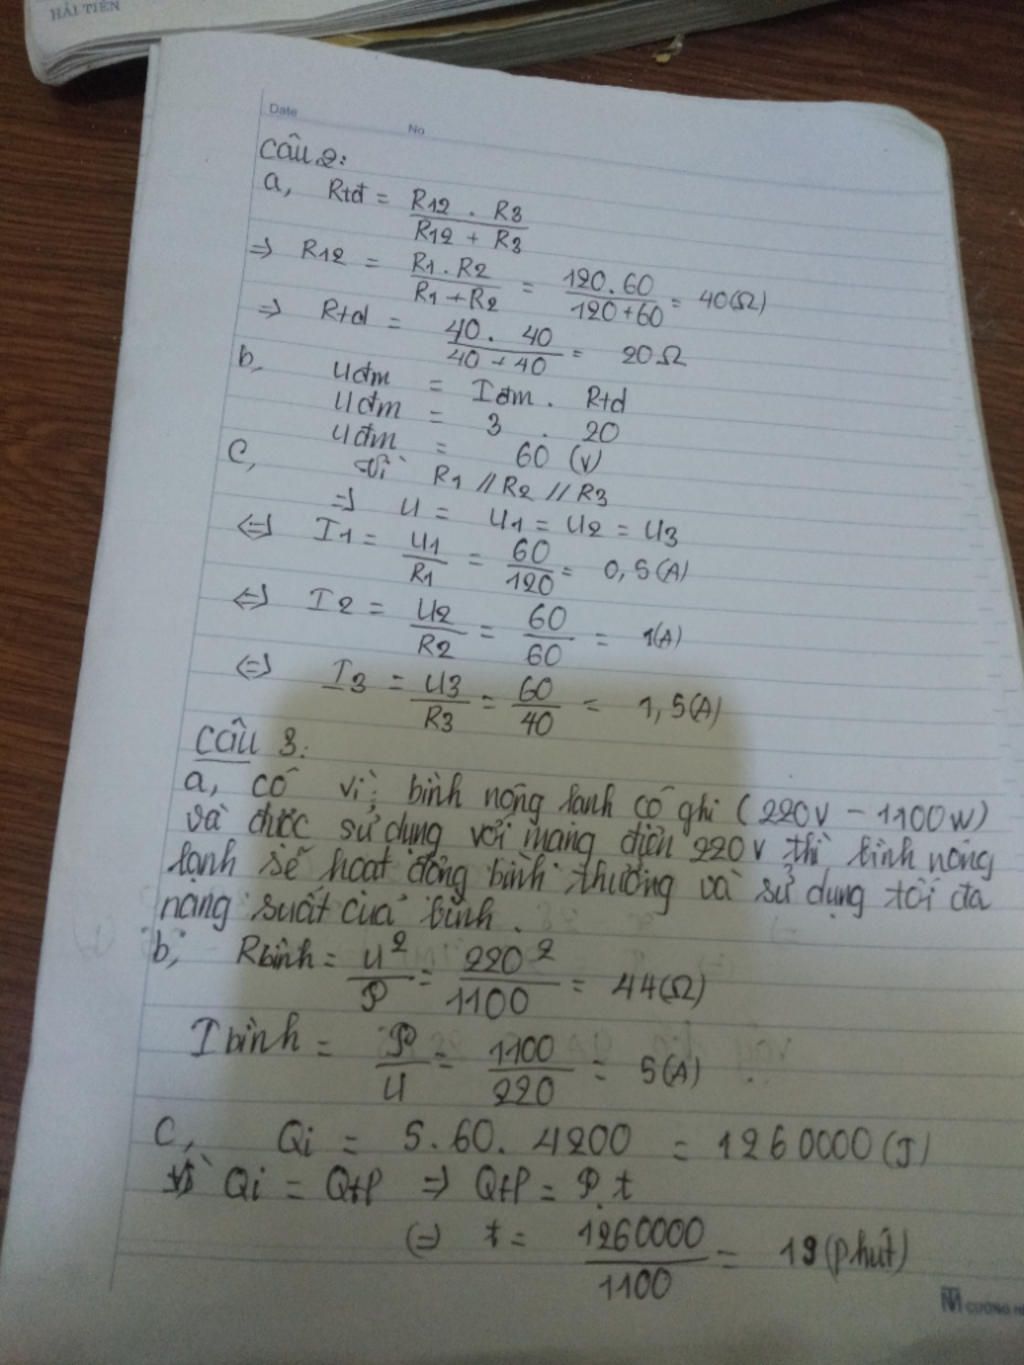 HẢI TIẾN
Date No
Câu 2:
a, Rtđ = R12 . R3 / R12 + R3
=> R12 = R1 . R2 / R1 + R2 = 120 . 60 / 120 + 60 = 40(Ω)
=> Rtđ = 40 . 40 / 40 + 40 = 20Ω
b, Uđm = Iđm . Rtđ
Uđm = 3 . 20
Uđm = 60 (V)
C, Vì R1 // R2 // R3
=> U = U1 = U2 = U3
<=> I1 = U1 / R1 = 60 / 120 = 0,5(A)
<=> I2 = U2 / R2 = 60 / 60 = 1(A)
<=> I3 = U3 / R3 = 60 / 40 = 1,5(A)
Câu 3:
a, Có vì; bình nóng lạnh có ghi (220V - 1100W)
và được sử dụng với mạng điện 220V thì bình nóng
lạnh sẽ hoạt động bình thường và sử dụng tối đa
năng suất của bình.
b, Rbình = U² / P = 220² / 1100 = 44(Ω)
Ibình = P / U = 1100 / 220 = 5(A)
C, Qi = 5 . 60 . 4200 = 1260000(J)
Vì Qi = Qtp => Qtp = P . t
<=> t = 1260000 / 1100 = 19(phút)